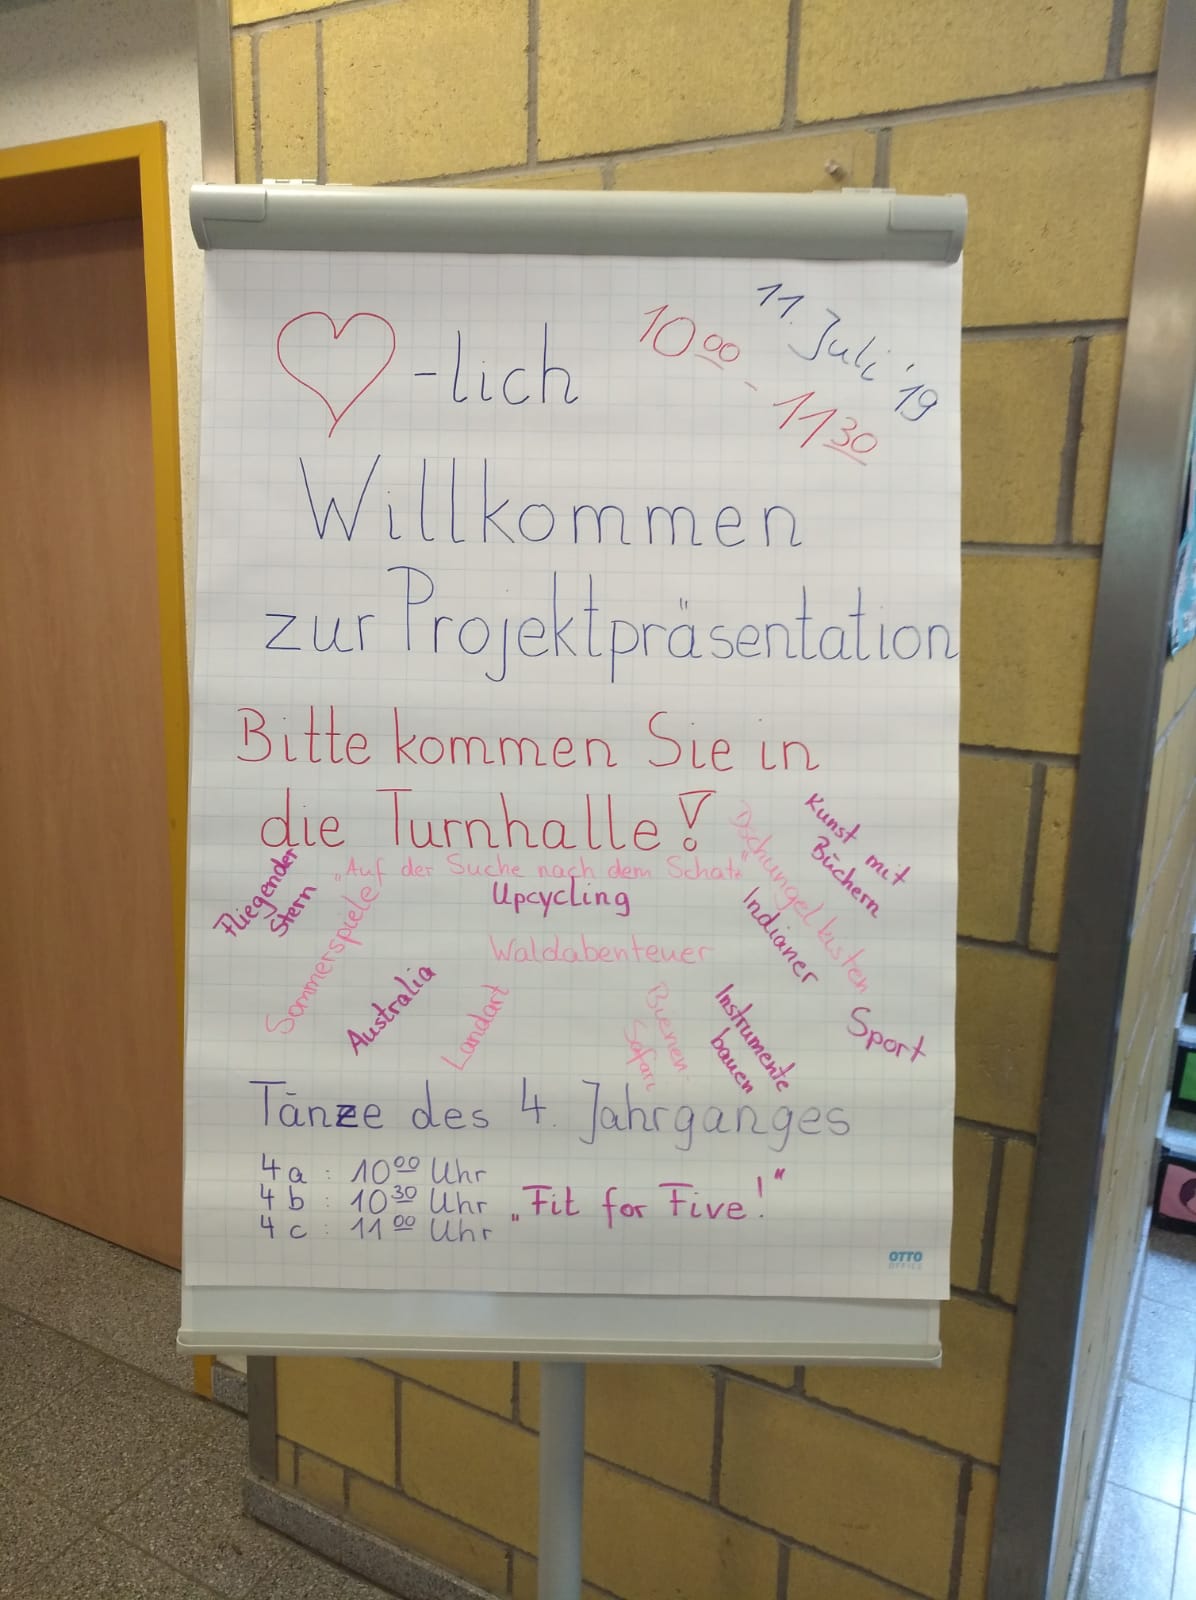 -lich
11. Juli '19
10 00 - 11 30
Willkommen
zur Projektpräsentation
Bitte kommen Sie in
die Turnhalle!
Fliegender
Stern
„Auf der Suche nach dem Schatz"
Upcycling
Dschungelkisten
Kunst mit
Büchern
Sommerspiele
Waldabenteuer
Indianer
Australia
Landart
Bienen-
Safari
Instrumente
bauen
Sport
Tänze des 4. Jahrganges
4a : 10 00 Uhr
4b : 10 30 Uhr
4c : 11 00 Uhr
„Fit for Five!"
OTTO
OFFICE